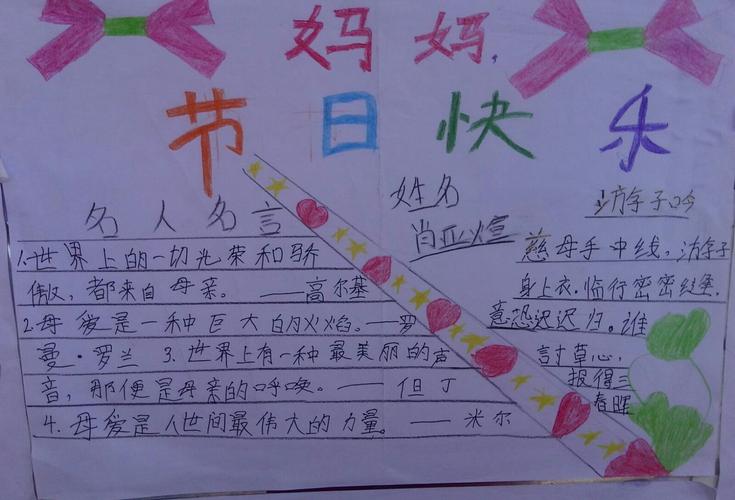 妈妈,
节日快乐
名人名言
1.世界上的一切光荣和骄
傲,都来自母亲。——高尔基
2.母爱是一种巨大的火焰。——罗
曼·罗兰 3.世界上有一种最美丽的声
音,那便是母亲的呼唤。——但丁
4.母爱是人世间最伟大的力量。——米尔
姓名
肖亚煊
游子吟
慈母手中线,游子
身上衣.临行密密缝,
意恐迟迟归。谁
草心,
报得三
春晖